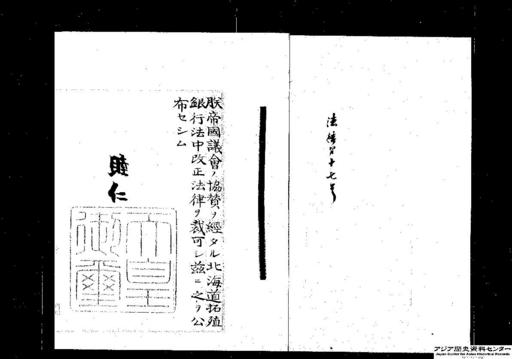 法律第十七号
朕帝國議會ノ協賛ヲ經タル北海道拓殖
銀行法中改正法律ヲ裁可シ茲ニ之ヲ公
布セシム
睦仁
天皇御璽
アジア歴史資料センター
Japan Center for Asian Historical Records